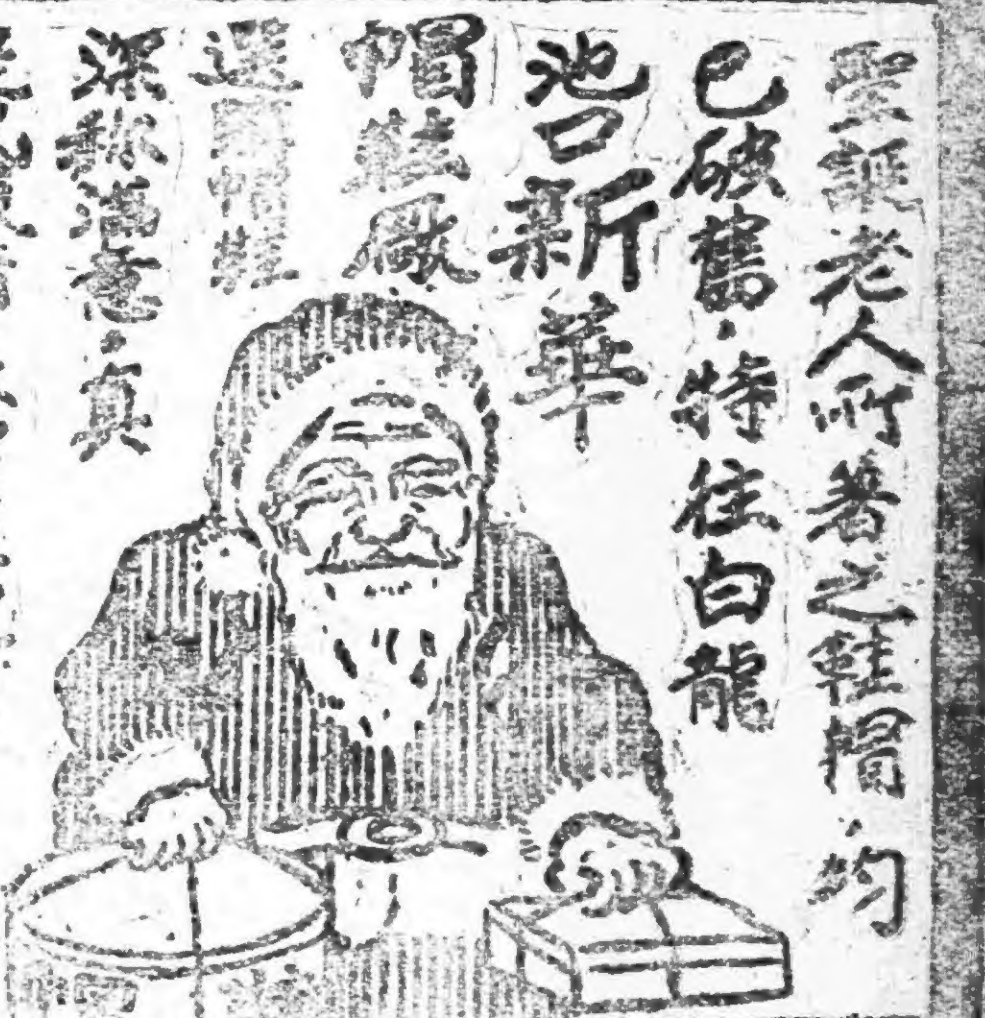 聖誕老人所着之鞋帽均
已破舊，特往白龍
池口新華
帽鞋廠
選購帽鞋
深稱滿意，真